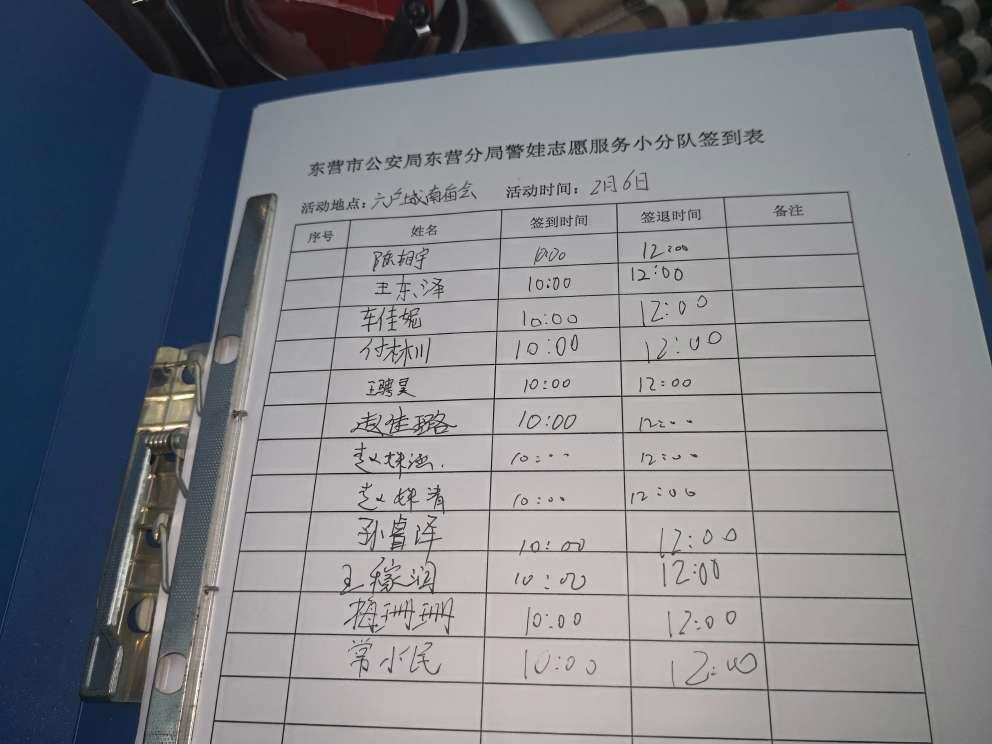 东营市公安局东营分局警娃志愿服务小分队签到表
活动地点：六户城南庙会 活动时间：2月6日
序号 姓名 签到时间 签退时间 备注
陈相宇 10:00 12:00
王东泽 10:00 12:00
车佳妮 10:00 12:00
付林川 10:00 12:00
王骋昊 10:00 12:00
赵佳璐 10:00 12:00
赵姝涵 10:00 12:00
赵姝清 10:00 12:00
孙睿泽 10:00 12:00
王稼润 10:00 12:00
梅珊珊 10:00 12:00
常小民 10:00 12:00